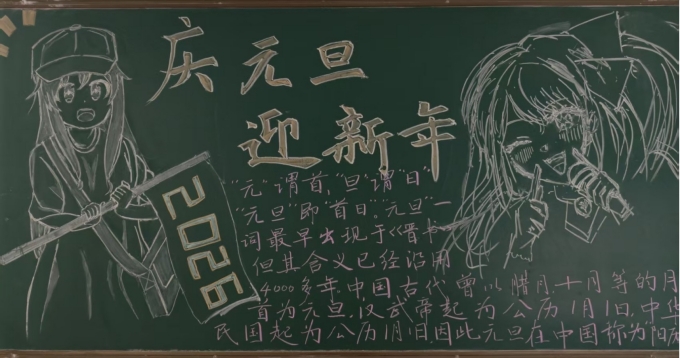 庆元旦
迎新年
2026
"元"谓首,"旦"谓"日"
"元旦"即"首日"。"元旦"一
词最早出现于《晋书》
但其含义已经沿用
4000多年。中国古代曾以腊月十月等的月
首为元旦,汉武帝起为公历1月1日,中华
民国起为公历1月1日因此元旦在中国称为"阳历